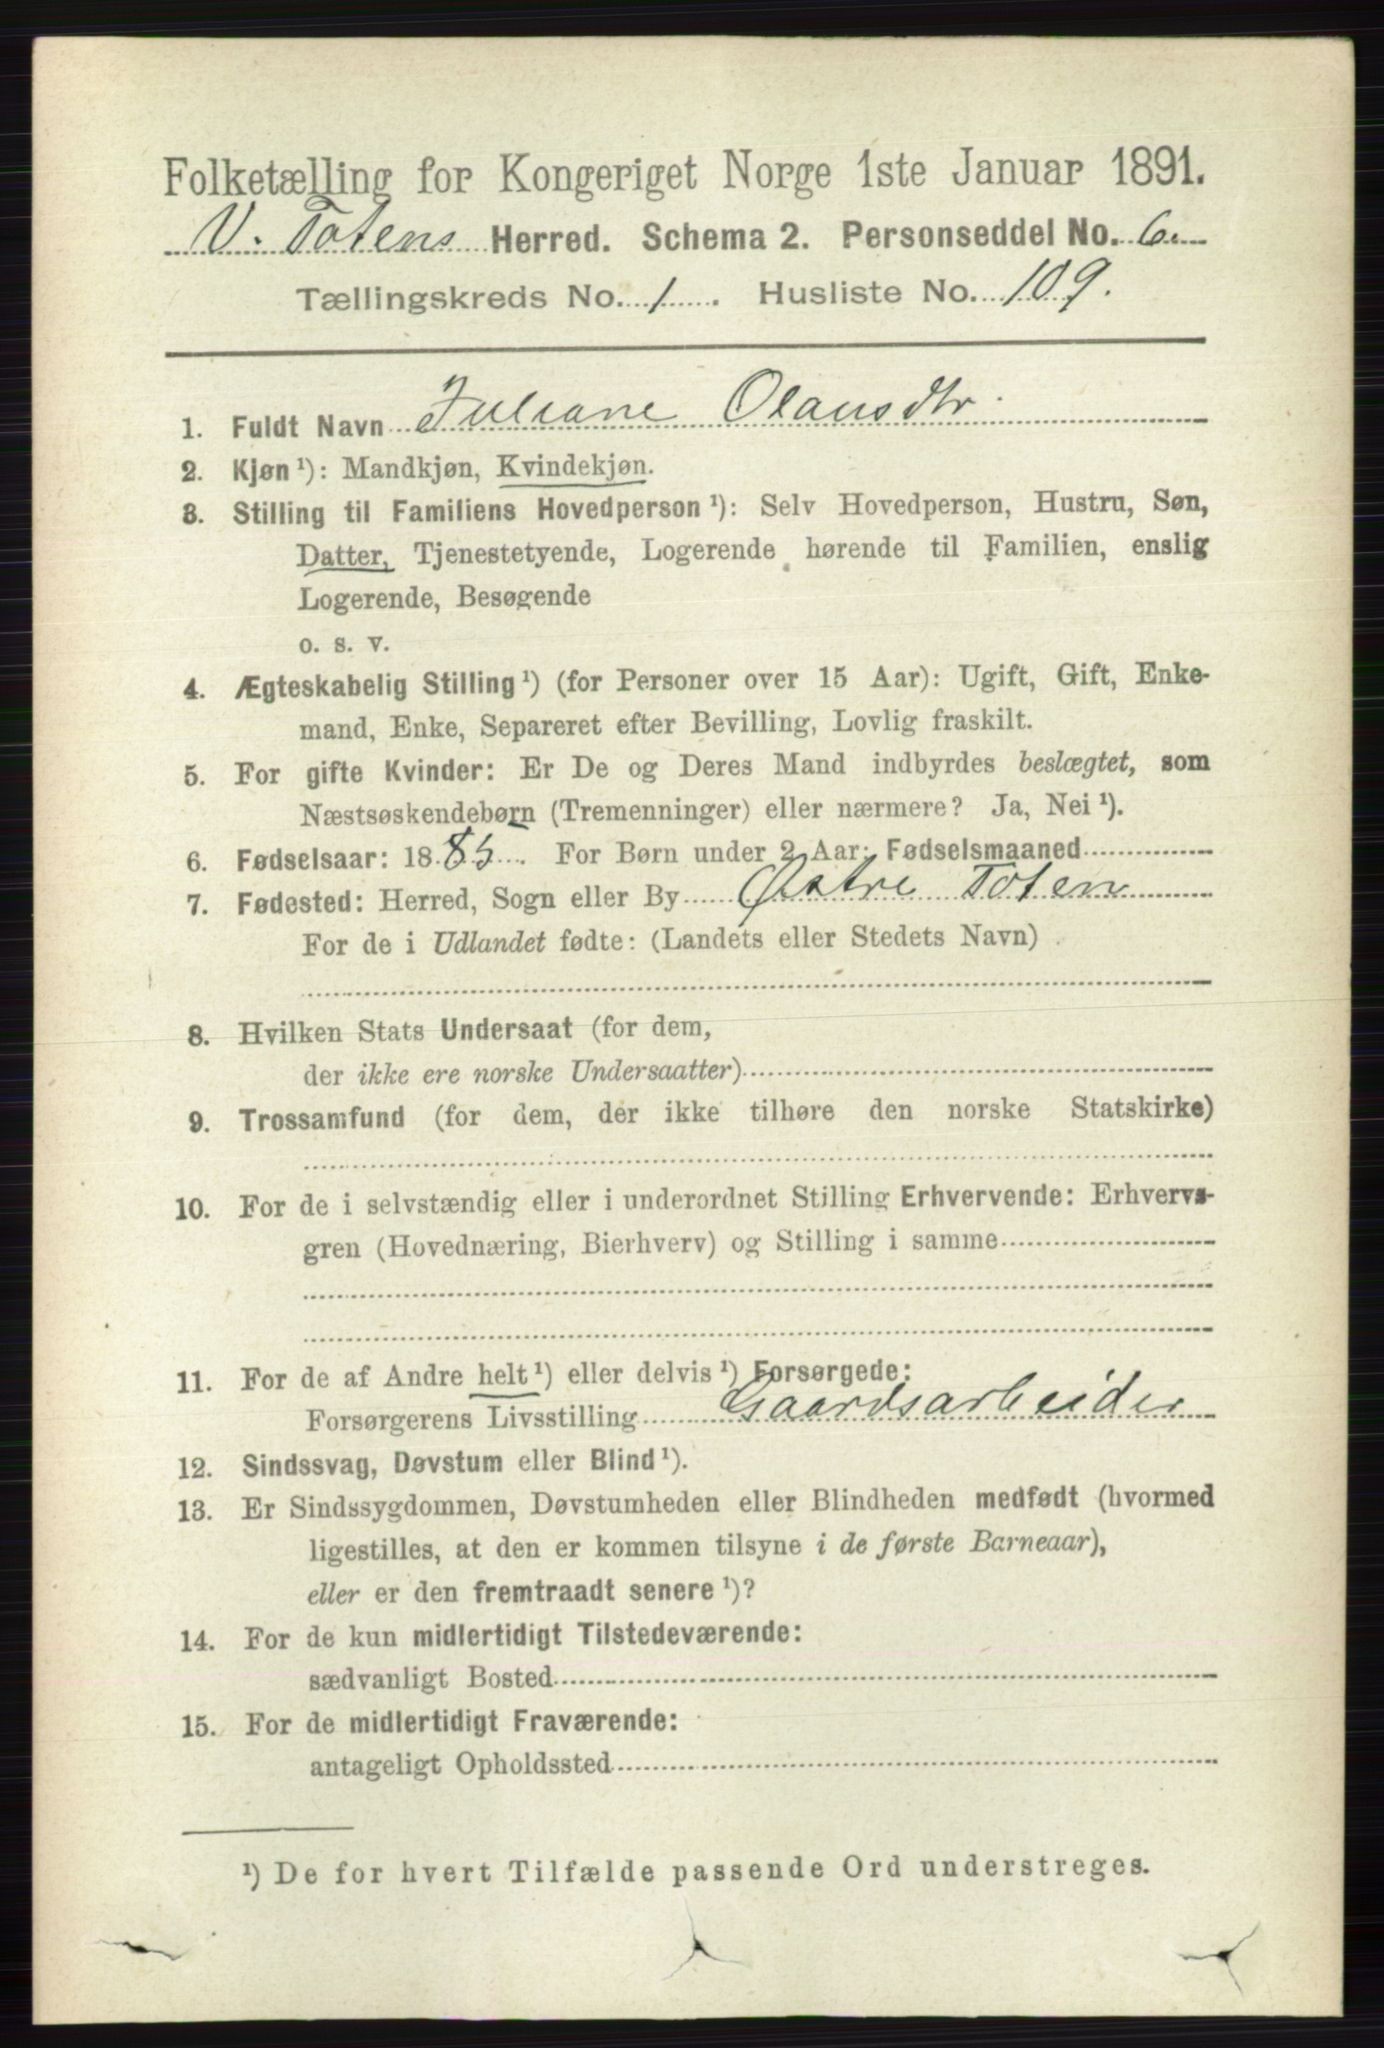 Folketælling for Kongeriget Norge 1ste Januar 1891.
V. Totens Herred. Schema 2. Personseddel No. 6.
Tællingskreds No. 1. Husliste No. 109.
1. Fuldt Navn Juliane Olausdtr.
2. Kjøn ¹): Mandkjøn, Kvindekjøn.
3. Stilling til Familiens Hovedperson ¹): Selv Hovedperson, Hustru, Søn,
Datter, Tjenestetyende, Logerende hørende til Familien, enslig
Logerende, Besøgende
o. s. v.
4. Ægteskabelig Stilling ¹) (for Personer over 15 Aar): Ugift, Gift, Enke-
mand, Enke, Separeret efter Bevilling, Lovlig fraskilt.
5. For gifte Kvinder: Er De og Deres Mand indbyrdes beslægtet, som
Næstsøskendebørn (Tremenninger) eller nærmere? Ja, Nei ¹).
6. Fødselsaar: 1885. For Børn under 2 Aar: Fødselsmaaned
7. Fødested: Herred, Sogn eller By Østre Toten
For de i Udlandet fødte: (Landets eller Stedets Navn)
8. Hvilken Stats Undersaat (for dem,
der ikke ere norske Undersaatter)
9. Trossamfund (for dem, der ikke tilhøre den norske Statskirke)
10. For de i selvstændig eller i underordnet Stilling Erhvervende: Erhvervs-
gren (Hovednæring, Bierhverv) og Stilling i samme
11. For de af Andre helt ¹) eller delvis ¹) Forsørgede:
Forsørgerens Livsstilling Gaardsarbeider
12. Sindssvag, Døvstum eller Blind ¹).
13. Er Sindssygdommen, Døvstumheden eller Blindheden medfødt (hvormed
ligestilles, at den er kommen tilsyne i de første Barneaar),
eller er den fremtraadt senere ¹)?
14. For de kun midlertidigt Tilstedeværende:
sædvanligt Bosted
15. For de midlertidigt Fraværende:
antageligt Opholdssted
¹) De for hvert Tilfælde passende Ord understreges.